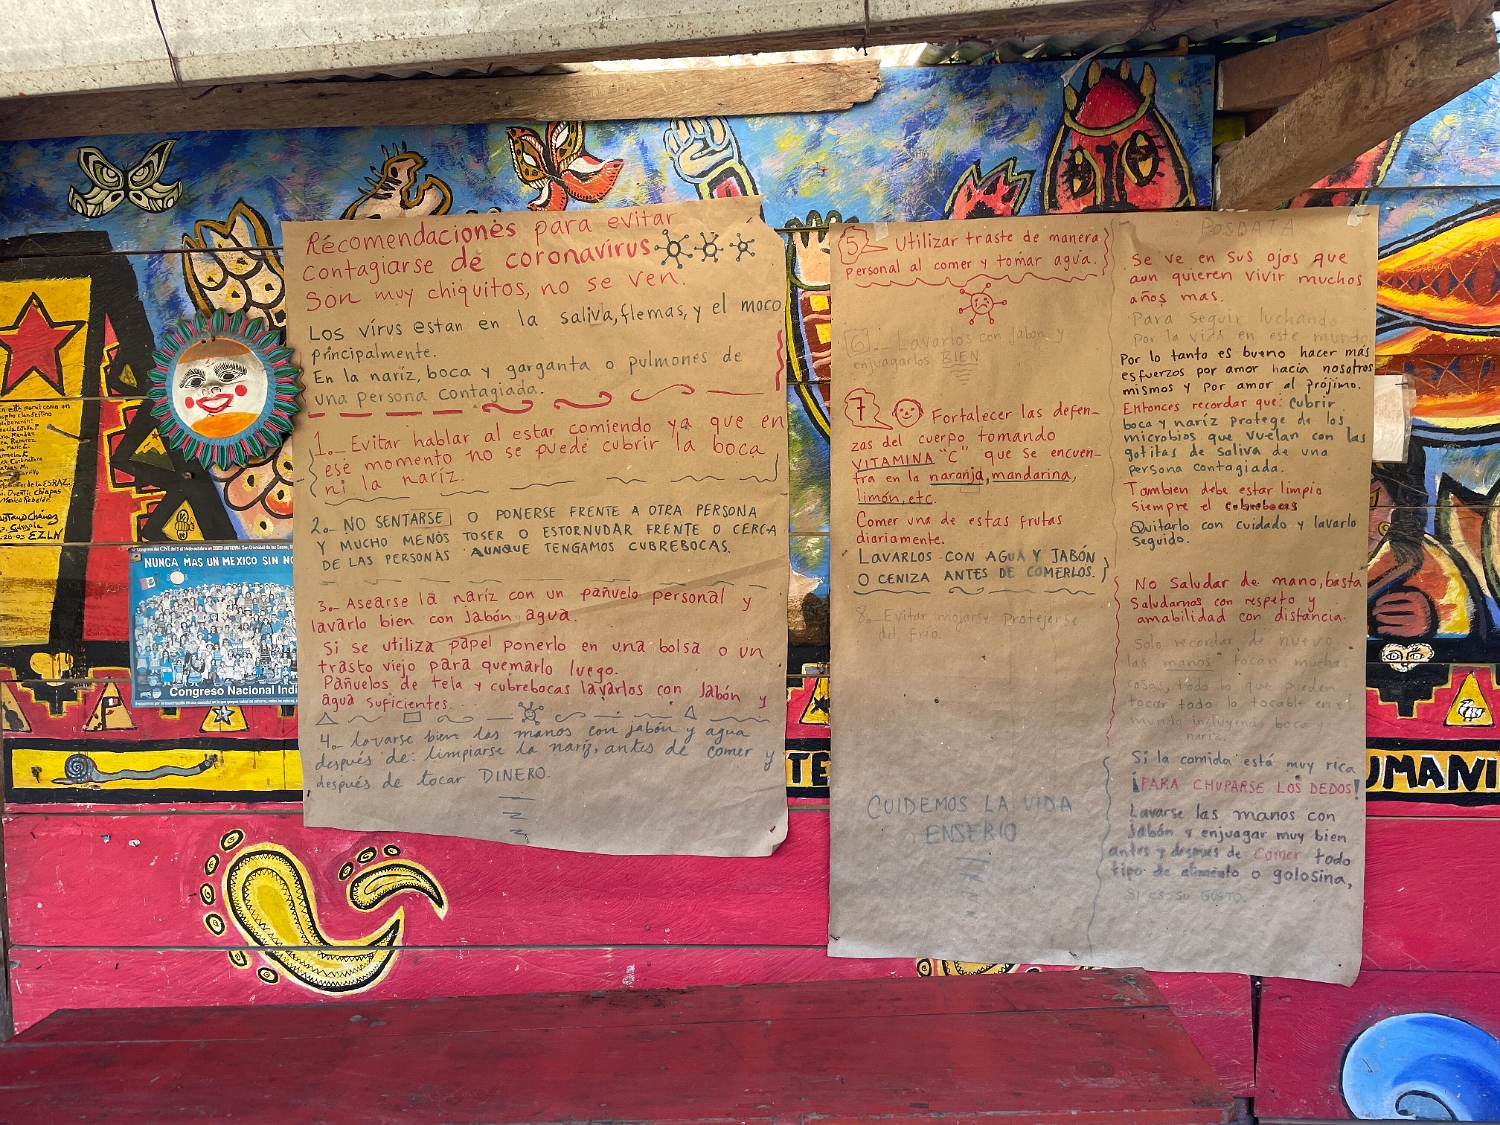 Recomendaciones para evitar
contagiarse de coronavirus
son muy chiquitos, no se ven.
Los vírus estan en la saliva, flemas, y el moco
principalmente.
En la naríz, boca y garganta o pulmones de
una persona contagiada.
1._ Evitar hablar al estar comiendo ya que en
ese momento no se puede cubrir la boca
ni la naríz.
2._ NO SENTARSE O PONERSE FRENTE A OTRA PERSONA
Y MUCHO MENOS TOSER O ESTORNUDAR FRENTE O CERCA
DE LAS PERSONAS AUNQUE TENGAMOS CUBREBOCAS.
3._ Asearse la naríz con un pañuelo personal y
lavarlo bien con jabón agua.
Si se utiliza papel ponerlo en una bolsa o un
trasto viejo para quemarlo luego.
Pañuelos de tela y cubrebocas lavarlos con jabón y
agua suficientes.
4._ lavarse bien las manos con jabón y agua
después de: limpiarse la naríz, antes de comer y
después de tocar DINERO.
5 Utilizar traste de manera
personal al comer y tomar agua.
6._ Lavarlos con jabón y
enjuagarlos BIEN
7 Fortalecer las defen-
zas del cuerpo tomando
VITAMINA "C" que se encuen-
tra en la naranja, mandarina,
limón, etc.
Comer una de estas frutas
diariamente.
LAVARLOS CON AGUA Y JABÓN
O CENIZA ANTES DE COMERLOS.
8._ Evitar mojarse protejerse
del frio.
CUIDEMOS LA VIDA
ENSERIO
POSDATA
Se ve en sus ojos que
aun quieren vivir muchos
años mas.
Para seguir luchando
Por la vida en este mundo
Por lo tanto es bueno hacer más
esfuerzos por amor hacia nosotros
mismos y por amor al prójimo.
Entonces recordar que: Cubrir
boca y naríz protege de los
microbios que vuelan con las
gotitas de saliva de una
persona contagiada.
Tambien debe estar limpio
Siempre el cubrebocas
Quitarlo con cuidado y lavarlo
Seguido.
No Saludar de mano, basta
Saludarnos con respeto y
amabilidad con distancia.
Solo recordar de nuevo
las manos tocan muchas
cosas, todo lo que pueden
tocar todo lo tocable en el
mundo incluyendo boca y
naríz.
Si la comida está muy rica
¡PARA CHUPARSE LOS DEDOS!
Lavarse las manos con
Jabón y enjuagar muy bien
antes y después de Comer todo
tipo de alimento o golosina,
si es su GUSTO.
NUNCA MAS UN MEXICO SIN NO
Congreso Nacional Indi
TE
UMANI
EZLN